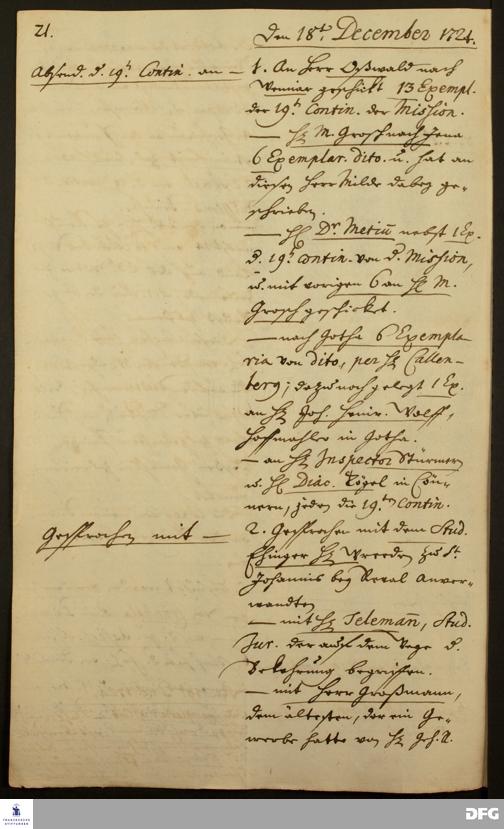 21.
Den 18t. December 1724.
Absend. d. 19t. Contin. an —
1. An Herr Oßwald nach
Weimar geschickt 13 Exempl.
der 19t. Contin. der Mission.
— H. M. Grosch nach Jena
6 Exemplar. dito. u. hat an
diesen Herr Milde dabey ge-
schrieben.
— H. Dr. Metiū nebst 1 Ex.
d. 19t. Contin. von d. Mission,
u. mit vorigen 6 an H. M.
Grosch geschicket.
— nach Gotha 6 Exempla-
ria von dito, per H. Callen-
berg; dazu noch gelegt 1 Ex.
an H. Joh. Henr. Wolff,
Hoffmahler in Gotha.
— an H. Inspector Stürmern
u. H. Diac. Kögel in Cön-
nern, jeden die 19te Contin.
Gesprochen mit —
2. Gesprochen mit dem Stud.
H. Wreeden zu St.
Johannis bey Reval Anver-
wandten
— mit H. Telemañ, Stud.
Jur. der auf dem Wege d.
Bekehrung begriffen.
— mit Herr Großmann,
dem ältesten, der ein Ge-
werbe hatte von H. Geh. R.
FRANCKESCHE STIFTUNGEN
DFG